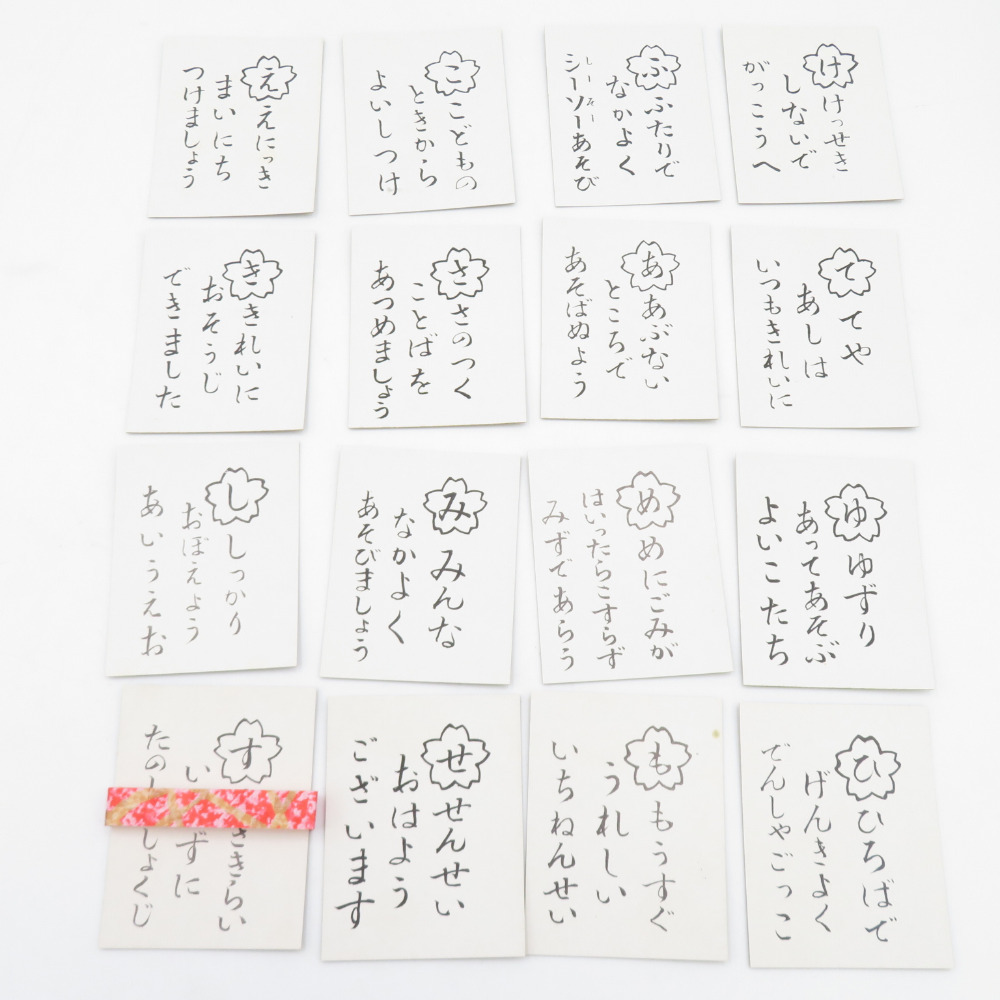 え
えにっき
まいにち
つけましょう
こ
こどもの
ときから
よいしつけ
ふ
ふたりで
なかよく
シーソーあそび
しーそー
け
けっせき
しないで
がっこうへ
き
きれいに
おそうじ
できました
さ
さのつく
ことばを
あつめましょう
あ
あぶない
ところで
あそばぬよう
て
てや
あしは
いつもきれいに
し
しっかり
おぼえよう
あいうえお
み
みんな
なかよく
あそびましょう
め
めにごみが
はいったらこすらず
みずであらう
ゆ
ゆずり
あってあそぶ
よいこたち
す
さきらい
い ずに
たの しょくじ
せ
せんせい
おはよう
ございます
も
もうすぐ
うれしい
いちねんせい
ひ
ひろばで
げんきよく
でんしゃごっこ